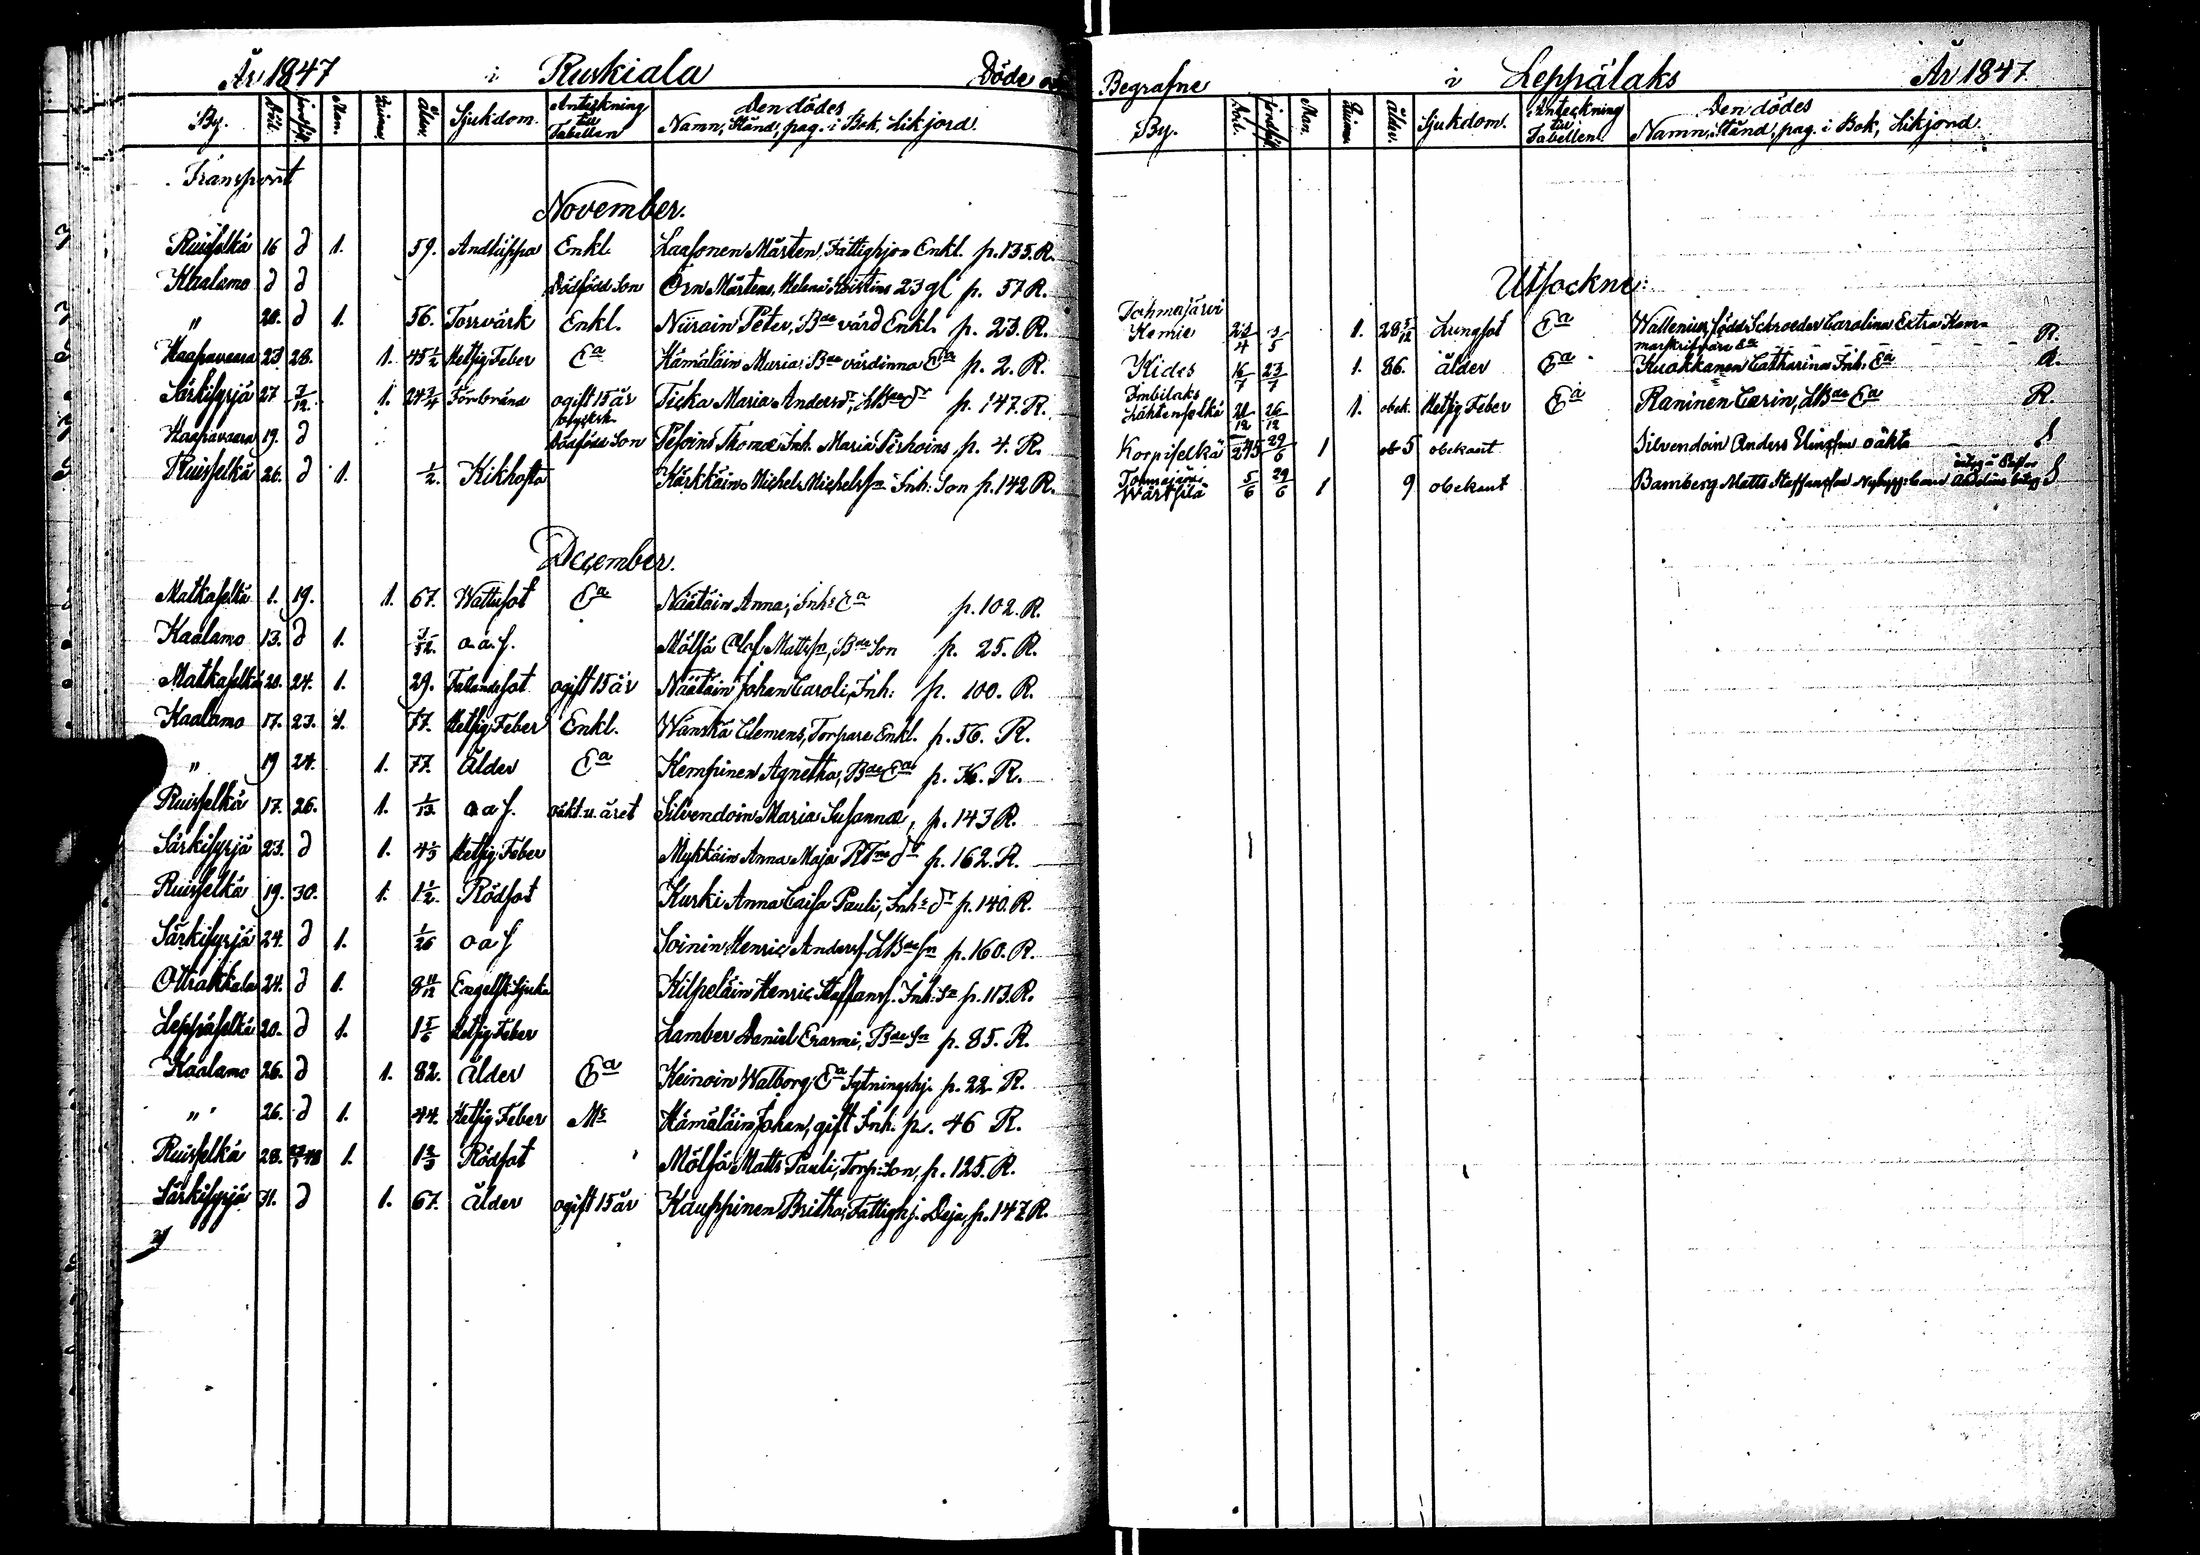 År 1847 i Ruskiala Döde
By. Död. jordf. Man. Quinna. Ålder. Sjukdom. Anteckning till Tabellen Den dödes Namn, Stånd, pag. i Bok, Likjord.
Transport
November.
Ruisselkä 16 d 1. 59. Andtäppa Enkl. Laasonen Mårten, Fattighjon Enkl. p. 135. R.
Kaalamo d d Dödfödd Son Örn Mårtens, Helena 23 gl p. 57 R.
" 20. d 1. 56. Torrvärk Enkl. Niirain Peter, Bde värd Enkl. p. 23. R.
Haapavaara 23. 28. 1. 45 1/2 Hetsig Feber Ea Hämäläin Maria, Bde värdinna Ea p. 2. R.
Särkisyrjä 27 3/12. 1. 24 3/4 Förbränd ogift 15 år Ticka Maria Andersdr, LBde dr p. 147. R.
Haapavaara 19. d Dödfödd Son Pesoins Thomæ Inh. Maria p. 4. R.
Ruisselkä 26. d 1. 1/2. Kikhosta Kärkkäin Michel Michelssn Inh: Son p. 142 R.
December.
Matkaselkä 1. 19. 1. 67. Wattusot Ea Näätäin Anna, Inh: Ea p. 102. R.
Kaalamo 13. d 1. 3/52. o.a.s. Mölsä Olof Mattssn, Bde Son p. 25. R.
Matkaselkä 20. 24. 1. 29. Fallandesot ogift 15 år Näätäin Johan Caroli, Inh: p. 100. R.
Kaalamo 17. 23. 1. 77. Hetsig Feber Enkl. Wänskä Clemens, Torpare Enkl. p. 56. R.
" 19 24. 1. 77. Ålder Ea Kempinen Agnetha, Bde Ea p. R.
Ruisselkä 17. 26. 1. 1/13. o a s. oäkt. u. året Silvendoin Maria Susannæ, p. 143 R.
Särkisyrjä 23. d 1. 4 1/3 Hetsig Feber Mykkäin Anna Maja dr p. 162. R.
Ruisselkä 19. 30. 1. 1 1/2. Rödsot Kurki Anna Caisa Pauli, Inh: dr p. 140. R.
Särkisyrjä 24. d 1. 1/26 o a s Soinin Henric Anderss. LBde sn p. 160. R.
Otrakkala 24. d 1. 8 11/12 Engelsk Sjuka Kilpeläin Henric Staffanss. Inh: Sn p. 113. R.
Leppäselkä 20. d 1. 1 5/6 Hetsig Feber Lamber Daniel Erasmi, Bde Sn p. 85. R.
Kaalamo 26. d 1. 82. Ålder Ea Keinoin Walborg, Ea Sytningshj. p. 22 R.
" 26. d 1. 44. Hetsig Feber Ms Hämäläin Johan, gift Inh. p. 46 R.
Ruisselkä 28. 1. 1 2/3 Rödsot Mölsä Matts Pauli, Torp: Son, p. 125. R.
Särkisyrjä 31. d 1. 67. Ålder ogift 15 år Kauppinen Britha, Fattighj. Deja, p. 147 R.
Begrafne i Leppälaks År 1847
By. Död. jordf. Man. Quinna Ålder. Sjukdom. Anteckning till Tabellen Den dödes Namn, Stånd, pag. i Bok, Likjord.
Utsockne:
Tohmajärvi
Kemie 23/4 3/5 1. 28 5/12 Lungsot Ea Wallenius, född Schroeder Carolina Extra Kam-
marskrifvare Ea R.
Kides 16/7 23/7 1. 86. Ålder Ea Kuokkanen Catharina Inh. Ea R.
Imbilaks
Lahtenselkä 20/12 26/12 1. obek. Hetsig Feber Ea Raninen Carin, LBde Ea R
Korpiselkä 29/6 1 5 obekant Silvendoin Anders Elinssn oäkta
Tohmajärvi
Wärtsilä 5/6 29/6 1 9 obekant Bamberg Matts Staffansson